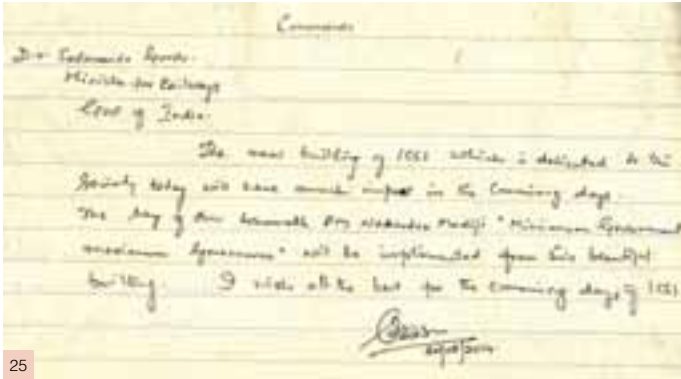 Comments
Minister for Railways
Govt of India.
The new building of ICSI which is dedicated to the
Society today will have much in the Comming days.
The Say of Our honourable PM Narendra Modiji "Minimum Government
maximum Governance" will be implimented from this beautiful
building. I wish all the best for the comming days of ICSI
25